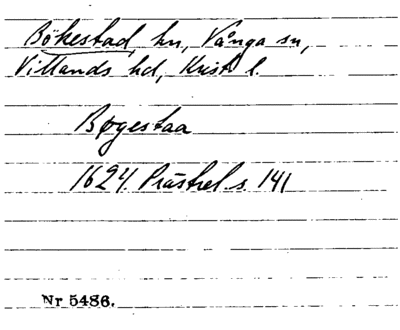 Bökestad, hn, Vånga sn,
Villands hd, Krist. l.
Bøgestaa
1624 Prästrel. s. 141
Nr 5486.